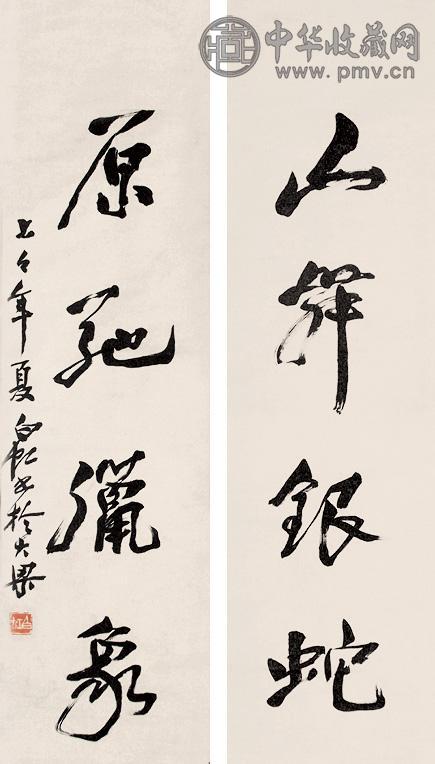 中华收藏网
www.pmv.cn
山舞銀蛇
原馳臘象
七々年夏白虹书於大梁